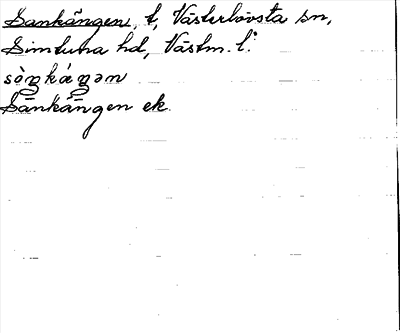 Sankängen, t, Västerlövsta sn,
Simtuna hd, Västm. l:
Sänkängen ek.